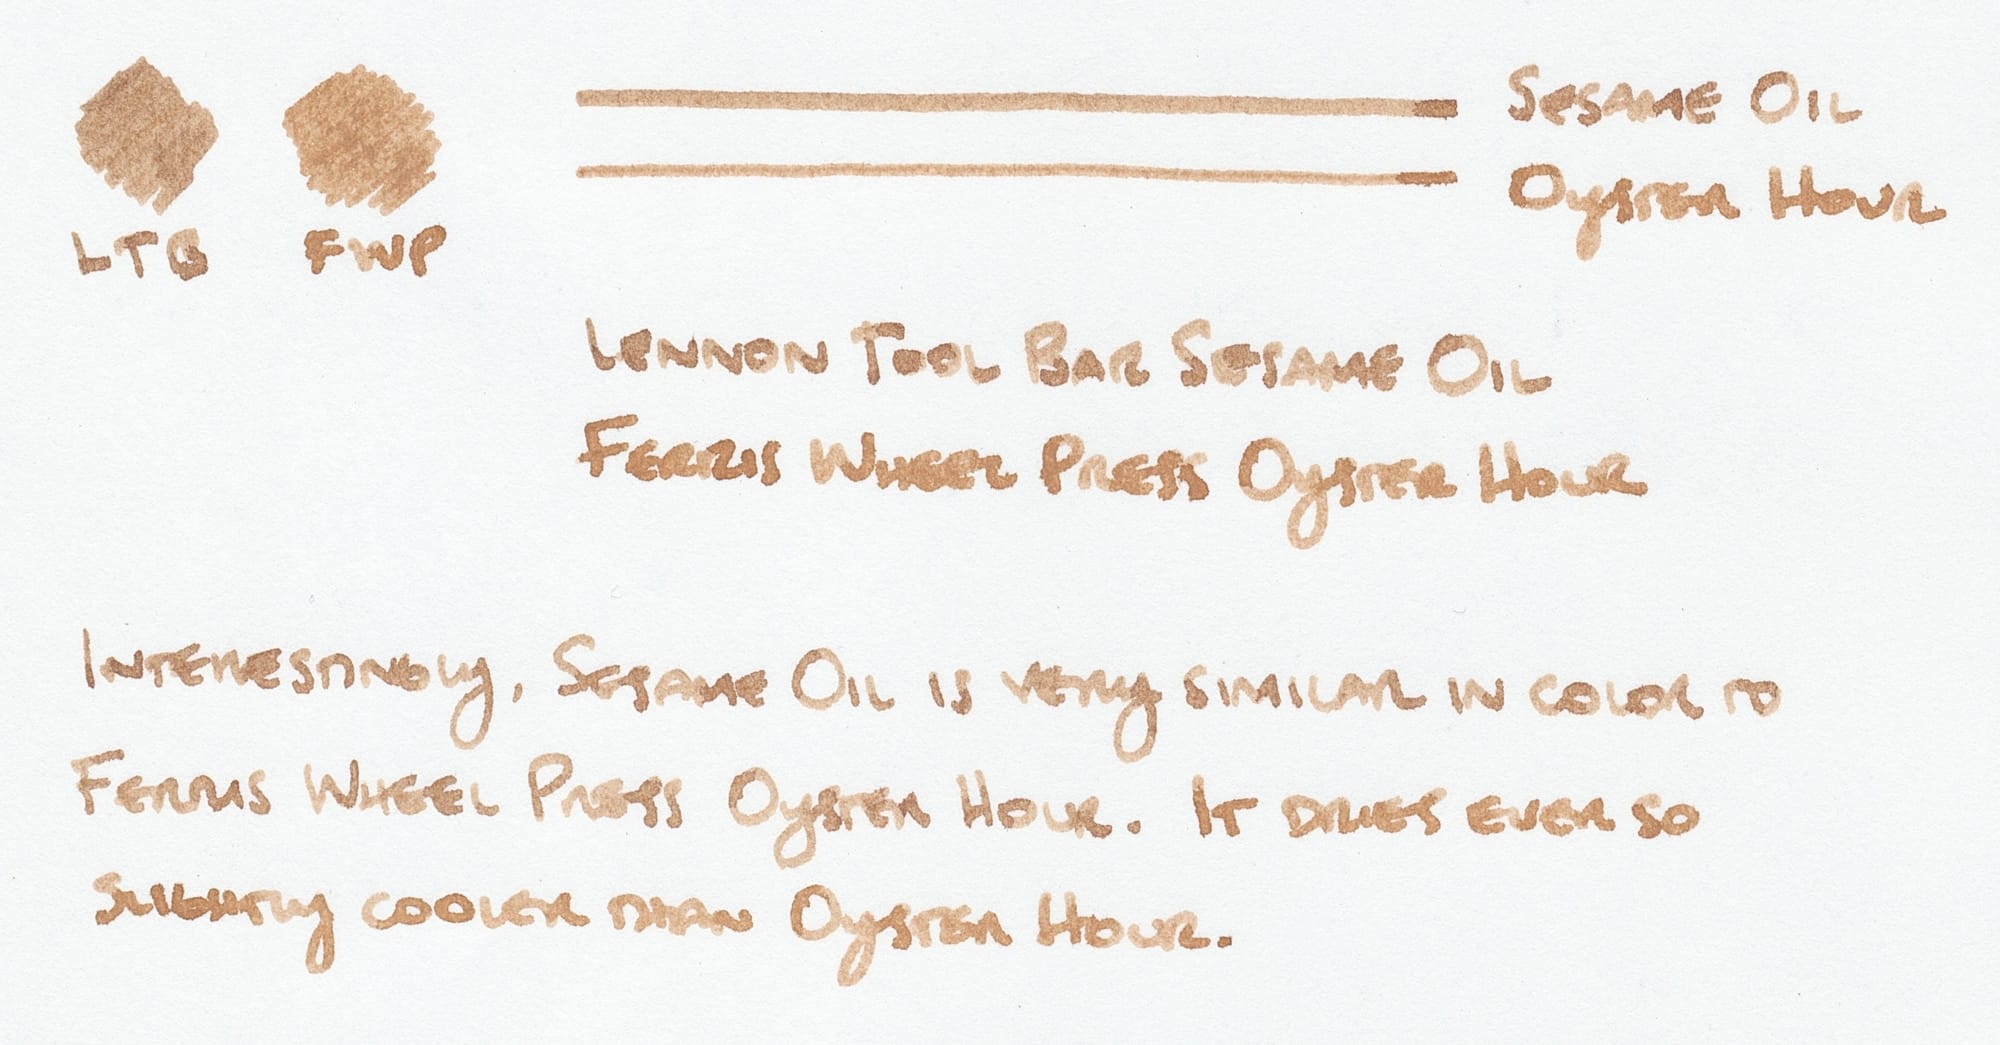 LTB FWP
Sesame Oil
Oyster Hour
Lennon Tool Bar Sesame Oil
Ferris Wheel Press Oyster Hour
Interestingly, Sesame Oil is very similar in color to
Ferris Wheel Press Oyster Hour. It dries ever so
slightly cooler than Oyster Hour.